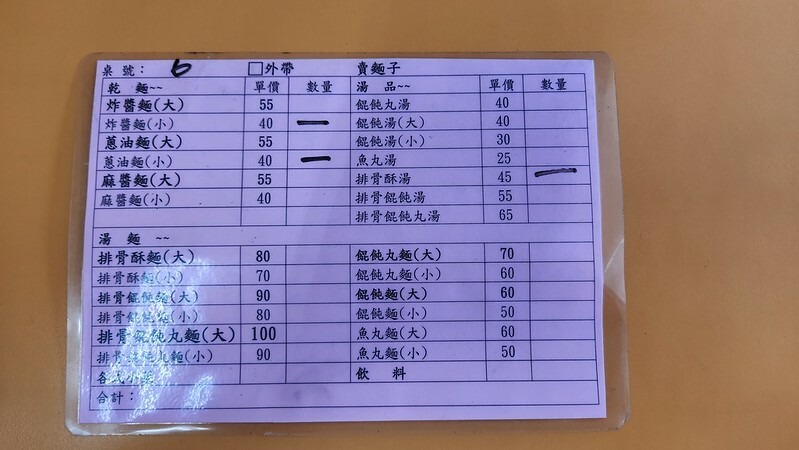 桌號： 6 □外帶 賣麵子
乾 麵~~ 單價 數量 湯 品~~ 單價 數量
炸醬麵(大) 55 餛飩丸湯 40
炸醬麵(小) 40 一 餛飩湯(大) 40
蔥油麵(大) 55 餛飩湯(小) 30
蔥油麵(小) 40 一 魚丸湯 25
麻醬麵(大) 55 排骨酥湯 45 一
麻醬麵(小) 40 排骨餛飩湯 55
排骨餛飩丸湯 65
湯 麵 ~~
排骨酥麵(大) 80 餛飩丸麵(大) 70
排骨酥麵(小) 70 餛飩丸麵(小) 60
排骨餛飩麵(大) 90 餛飩麵(大) 60
排骨餛飩麵(小) 80 餛飩麵(小) 50
排骨餛飩丸麵(大) 100 魚丸麵(大) 60
排骨餛飩丸麵(小) 90 魚丸麵(小) 50
各式小菜 飲 料
合計：